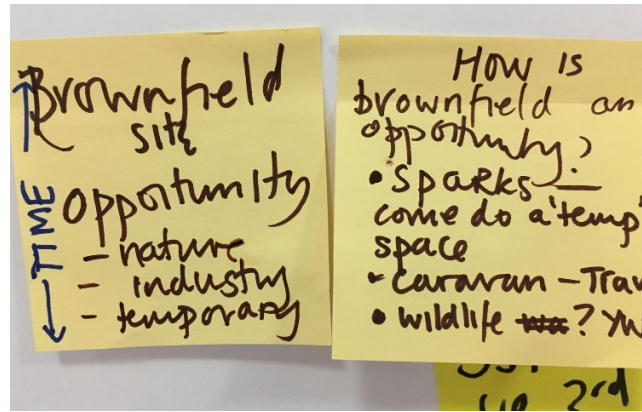 Brownfield
site
Opportunity
- nature
- industry
- temporary
← TIME →
How is
brownfield an
opportunity?
• Sparks —
come do a 'temp'
space
• Caravan - Trav
• wildlife ?
3rd